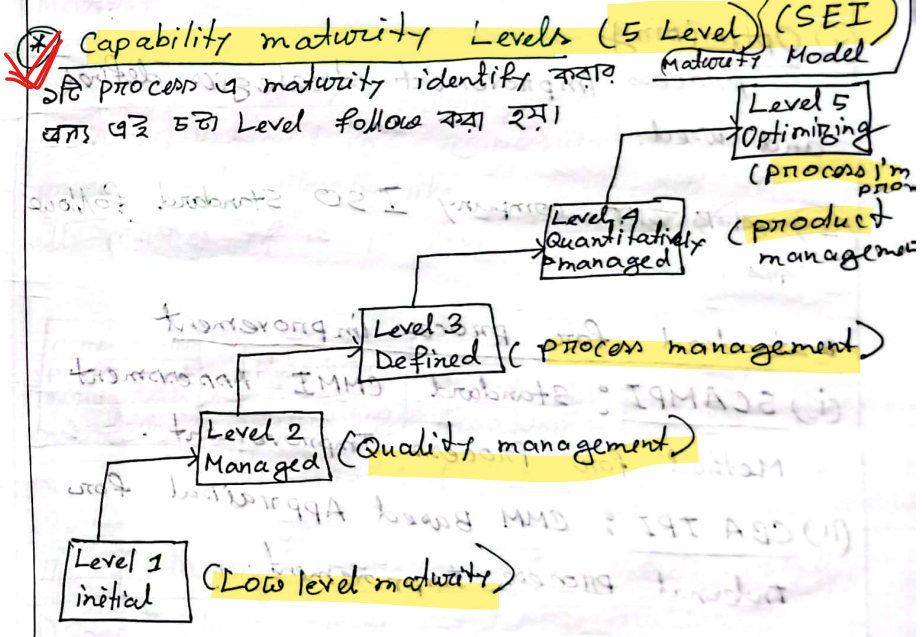 * Capability maturity Levels (5 Level) (SEI
Maturity Model
১টি process এ maturity identify করার
জন্য এই ৫টা Level follow করা হয়।
Level 5
Optimizing
(process im
Level 4
Quantitatively
managed
(product
management
Level 3
Defined
(process management)
Level 2
Managed
(Quality management)
Level 1
initial
(Low level maturity)